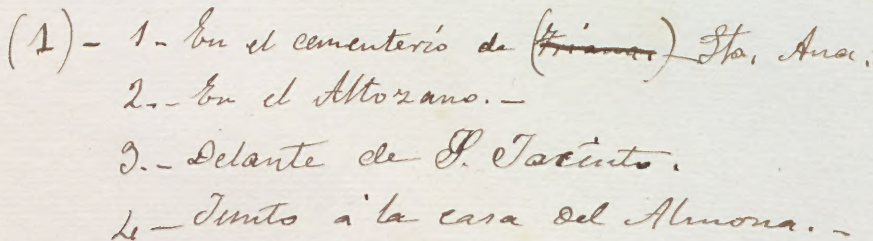 (1) - 1 - En el cementerio de (Triana.) Sta. Ana.
2. - En el Altozano. -
3. - Delante de S. Jacinto.
4 - Junto á la casa del Almona. -